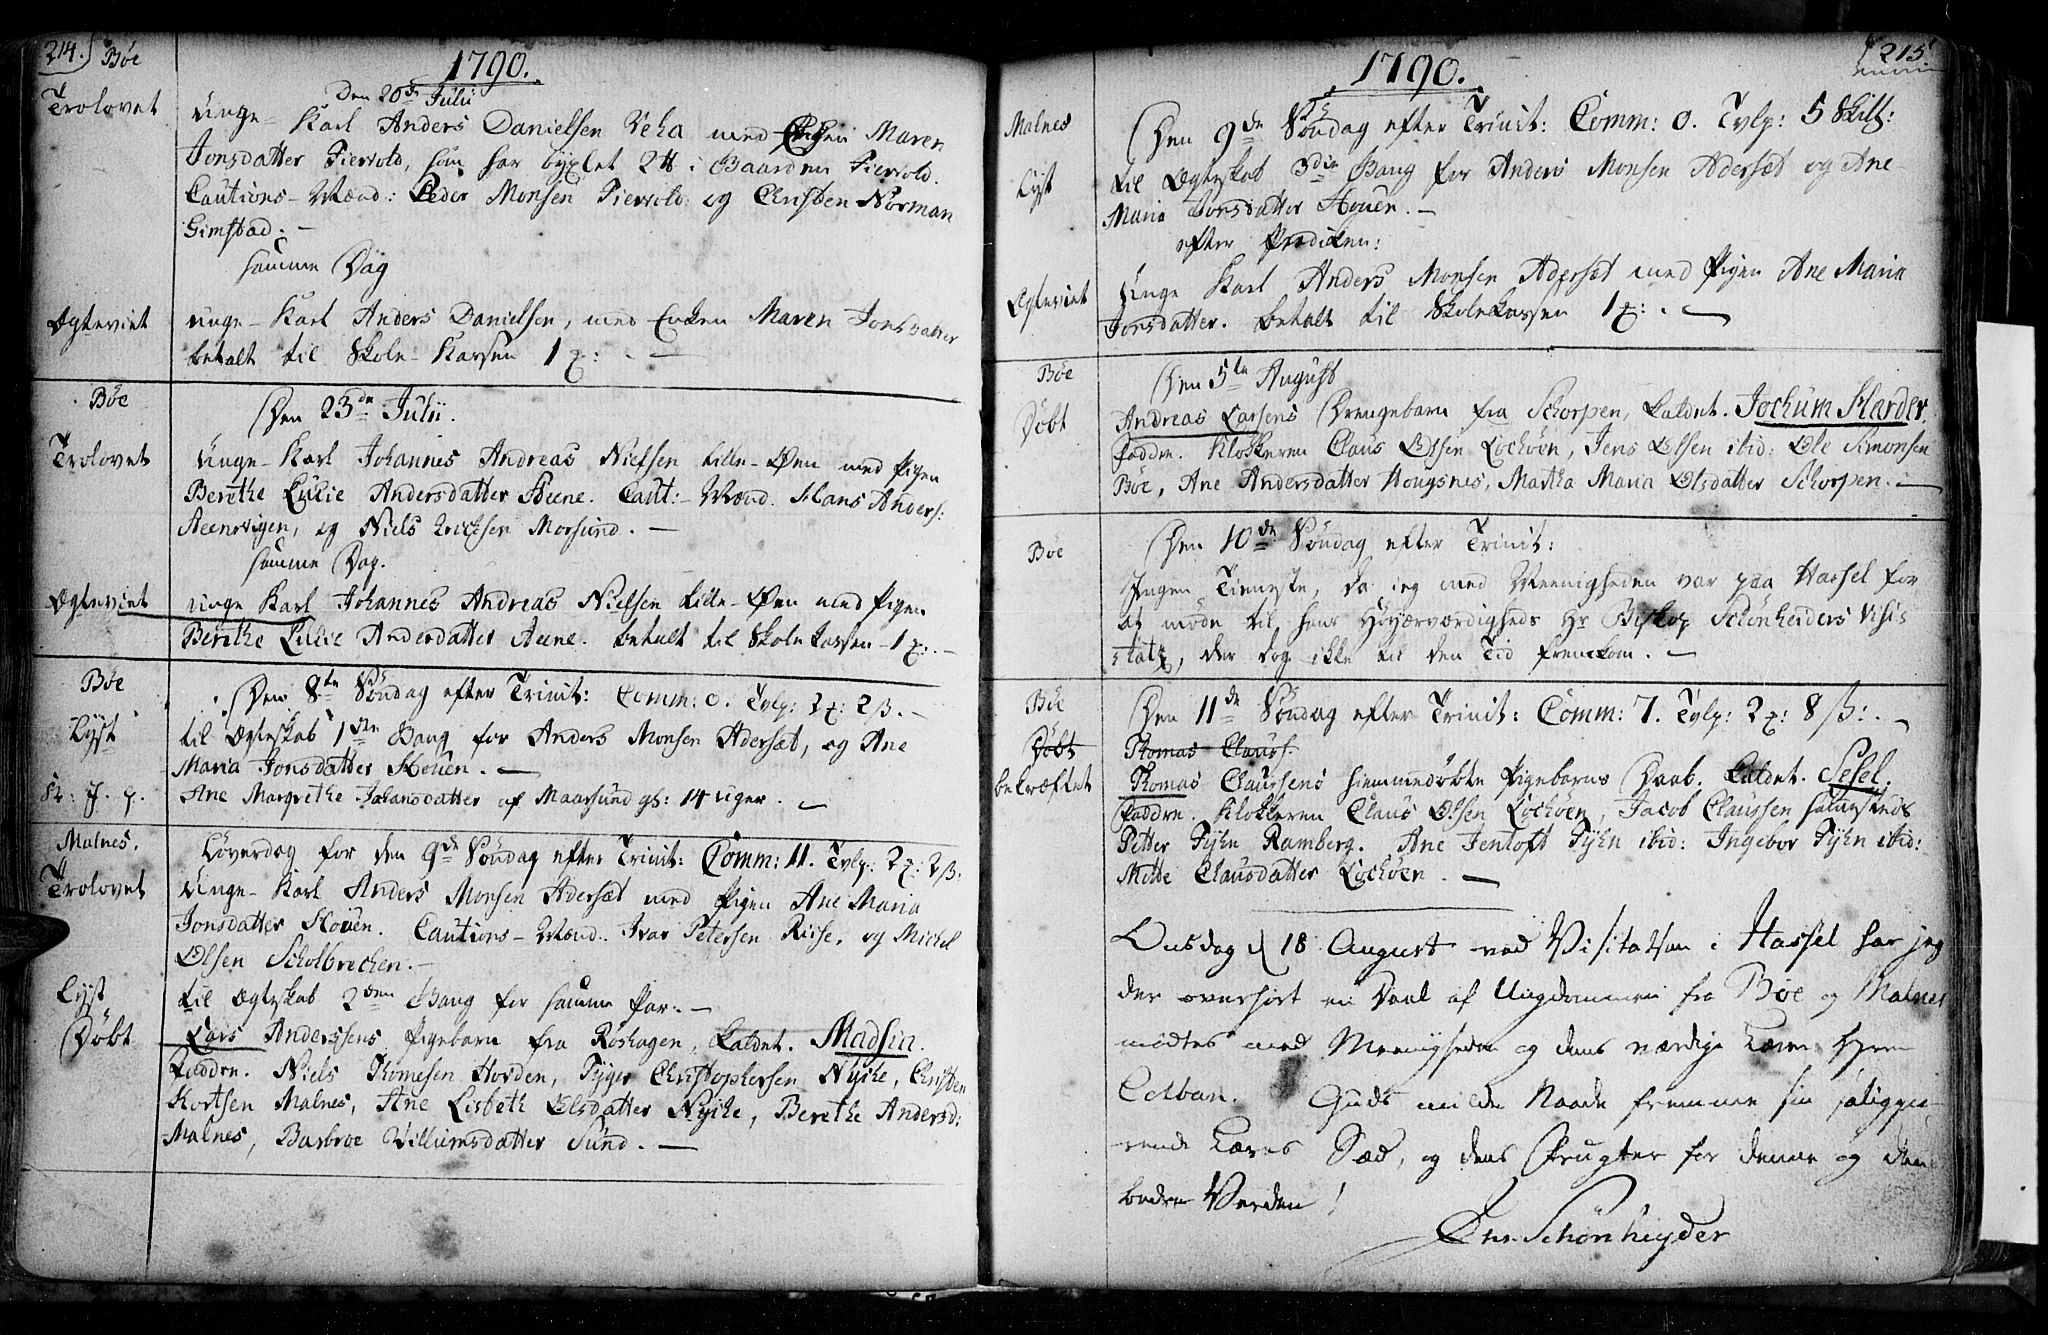 214. Bøe
1790.
Den 20de Julii
Trolovet
Unge-Karl Anders Danielsen Veha med Enken Maren
Jonsdatter Fiervold, som har bÿxlet 2 tt i Gaarden Fiervold.
Cautions-Mænd: Peder Monsen Fiervold og Christen Norman
Gimstad. -
samme Dag
Ægteviet
unge-Karl Anders Danielsen, med Enken Maren Jonsdatter
betalt til Skole-Kassen 1
Bøe
Den 23de Julii.
Trolovet
Unge-Karl Johannes Andreas Nielsen Lille-Øen med Pigen
Berethe Lulie Andersdatter Steene. Caut:-Mænd. Hans Anders:
Steensvigen, og Niels Erichsen Morsund. -
samme Dag.
Ægteviet
unge Karl Johannes Andreas Nielsen Lille-Øen med Pigen
Berethe Lulie Andersdatter Steene. betalt til Skole Kassen - 1
Bøe
Den 8de Søndag efter Trinit: Comm: 0. Tvlp: 2 ß. -
Lÿst
til Ægteskab 1ste Gang for Anders Monsen Adersæt, og Ane
Maria Jonsdatter Houen. -
Ane Margrethe Johansdatter af Maarsund gl: 14 uger. -
Malnes.
Løverdag for den 9de Søndag efter Trinit: Comm: 11. Tvlp: 2 ß:
Trolovet
Unge-Karl Anders Monsen Adersæt med Pigen Ane Maria
Jonsdatter Houen. Cautions-Mænd. Ivar Petersen Risse, og Michel
Olsen Scholbrechen. -
Lÿst
til Ægteskab 2den Gang for samme Par. -
Døbt
Lars Anderssens Pigebarn fra Roshagen, kaldet. Madsin.
Faddre. Niels Thomesen Hovden, Tÿger Christophersen Nÿcke, Christen
Kortsen Malnes, Ane Lisbeth Olsdatter Nÿcke, Berethe Andersd:
Malnes, Barbroe Villiumsdatter Sund. -
215.
1790.
Malnes
Den 9de Søndag efter Trinit: Comm: 0. Tvlp: 5 Skill:
Lÿst
til Ægteskab 3die Gang for Anders Monsen Adersæt og Ane
Maria Jonsdatter Houen. -
efter Prædiken:
Ægteviet
Unge Karl Anders Monsen Adersæt med Pigen Ane Maria
Jonsdatter. betalt til Skolekassen 1
Bøe
Den 5te August
Døbt
Andreas Larsens Drengebarn fra Schorpen, kaldet. Jochum Harder.
Faddre. Klokkeren Claus Olsen Lochøen, Jens Olsen ibid: Ole Simonsen
Bøe, Ane Andersdatter Hougsnes, Martha Maria Olsdatter Schorpen. -
Bøe
Den 10de Søndag efter Trinit:
Ingen Tieneste, da ieg med Meenigheden var paa Hassel for
at møde til hans Høyærværdigheds Hr Biskop Schönheiders Visi-
statz, der dog ikke til den Tid fremkom. -
Bøe
Den 11de Søndag efter Trinit: Comm: 7. Tvlp: 2 8 ß:. -
Døbt
Thomas Clauss.
bekræftet
Thomas Claussens hiemmedøbte Pigebarns Daab. kaldet. Sesel.
Faddre. Klokkeren Claus Olsen Lochøen, Jacob Claussen sammesteds
Petter Fÿhn Ramberg. Ane Jentoft Fÿhn ibid: Ingebor Fÿhn ibid:
Mette Clausdatter Lochøen. -
Onsdag d 18 August ved Visitatsen i Hassel har jeg
der overhørt en Deel af Ungdommen fra Bøe og Malnes
mødtes med Meenigheden og dens værdige Lærer Herr
Colban. Guds milde Naade fremme sin saliggiø-
rende Læres Sæd, og dens Frugter for denne og den
bedre Verden!
Schönheyder